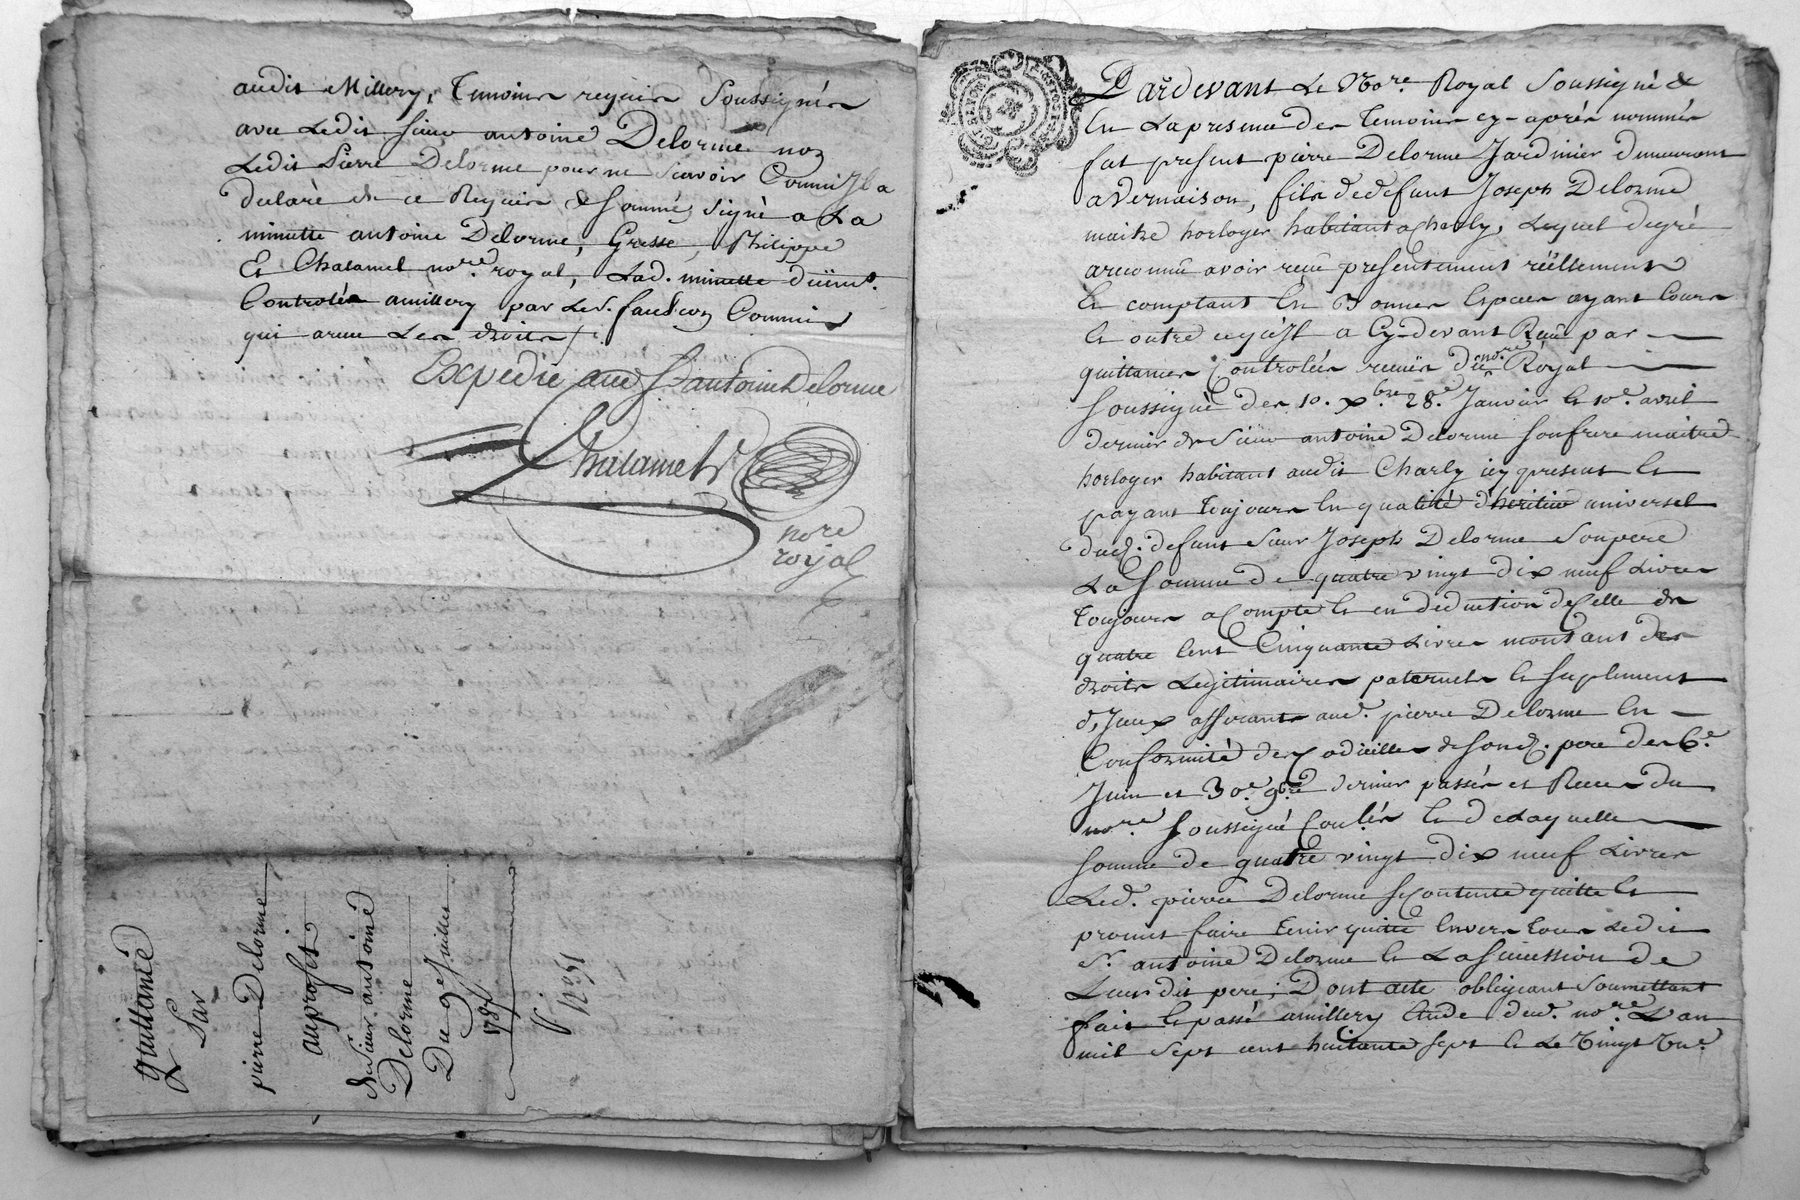 audit Millery, Temoins requis Soussignés
avec Ledit sieur antoine Delorme non
Ledit Pierre Delorme pour ne scavoir Comm'Jl a
declaré de ce Requis & sommé, signé a La
minutte antoine Delorme, Gresse, Philippe
Et Chatamel no.re royal, Lad. minutte düem.t
Controlée a millery par Le s.
qui a reçu Les droits /.
Expédié aud S.r antoine Delorme
Chalamel
no.re
royal
quittance
Par
pierre Delorme
au profit
du Sieur antoine
Delorme
Du 9e Juillet
1787
Pardevant Le No.re Royal Soussigné &
En La presence des Temoins cy-aprés nommés
fut present pierre Delorme Jardinier demeurant
a Vernaison, fils de defunt Joseph Delorme
maitre horloger habitant a Charly, Lequel de gré
a reconnu avoir reçu presentement réellement
Et comptant En Bonnes Especes ayant Cours
Et outre ce qu'Jl a Cy-devant Reçu par
quittances Controlées reçues Du no.re Royal
soussigné des 10. x.bre 28.e Janvier Et 10e. avril
dernier de Sieur antoine Delorme son frere maitre
horloger habitant audit Charly icy present Et
payant Toujours En qualité d'heritier universel
dud. defunt Sieur Joseph Delorme Son pere
La Somme de quatre vingt dix neuf Livres
Toujours a Compte Et en deduction de Celle de
quatre Cent Cinquante Livres montant des
droits Legitimaires paternels Et suplement
d'Jceux afferants aud. pierre Delorme En
Conformité des Codicilles de son d. pere des 6.e
Juin et 30.e 9.bre dernier passés et Recus du
no.re Soussigné Con.lés Et de Laquelle
somme de quatre vingt dix neuf Livres
Led. pierre Delorme se Contente quitte Et
promet faire Tenir quitte Envers Tous Ledit
S.r antoine Delorme Et La succession de
Leur dit pere; Dont acte obligeant Soumettant
fait Et passé a millery Etude dud. no.re L'an
mil sept cent huitante sept Et Le